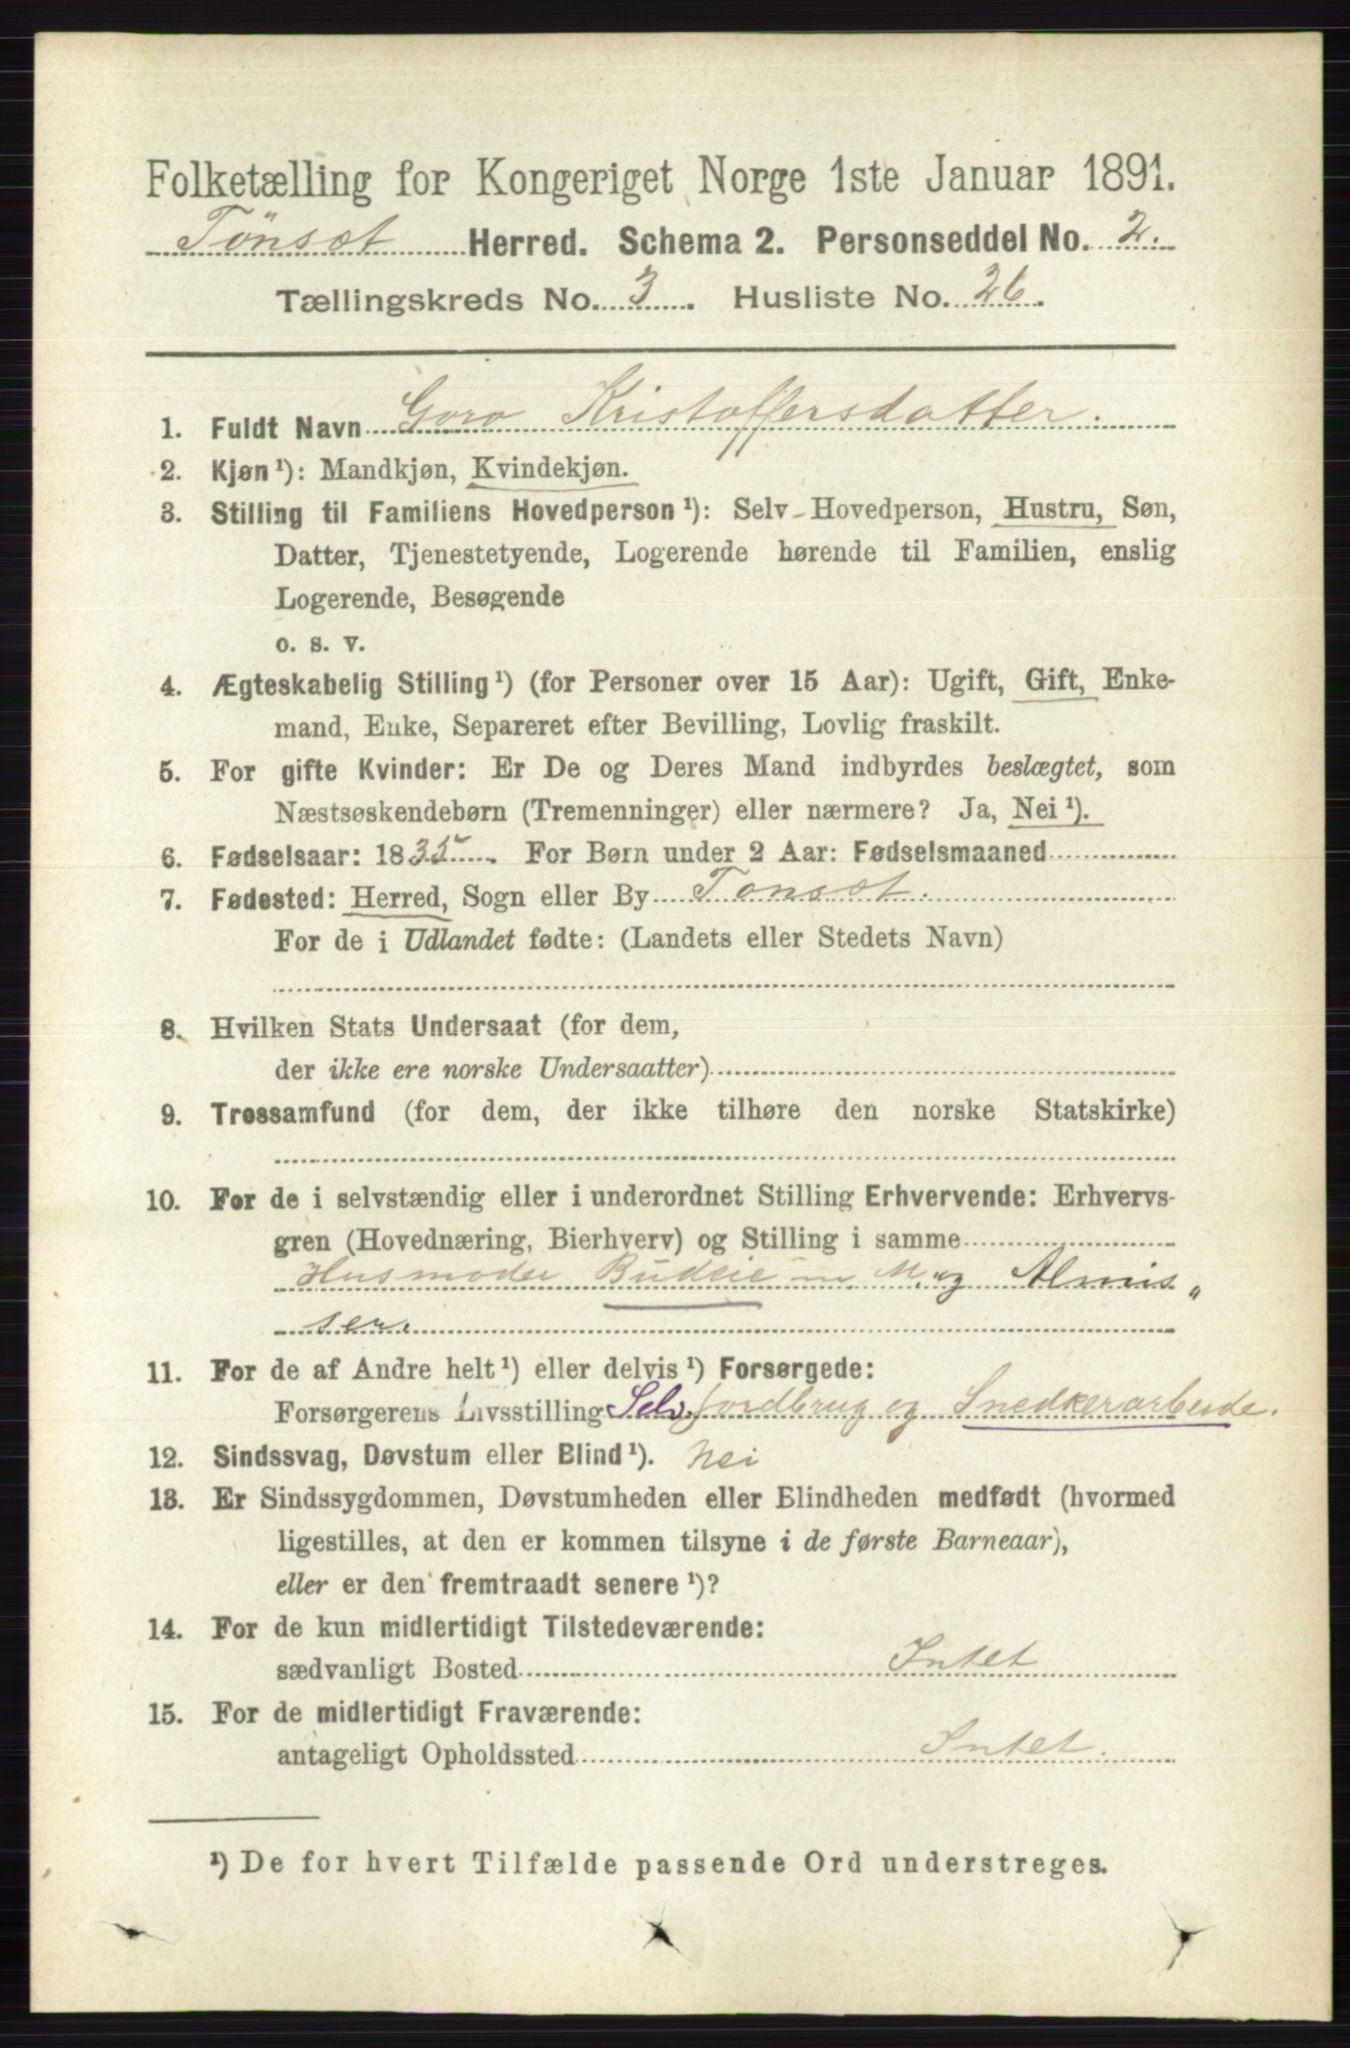 Folketælling for Kongeriget Norge 1ste Januar 1891.
Tönset Herred. Schema 2. Personseddel No. 2.
Tællingskreds No. 3. Husliste No. 26.
1. Fuldt Navn Goro Kristoffersdatter.
2. Kjøn ¹): Mandkjøn, Kvindekjøn.
3. Stilling til Familiens Hovedperson ¹): Selv-Hovedperson, Hustru, Søn,
Datter, Tjenestetyende, Logerende hørende til Familien, enslig
Logerende, Besøgende
o. s. v.
4. Ægteskabelig Stilling ¹) (for Personer over 15 Aar): Ugift, Gift, Enke-
mand, Enke, Separeret efter Bevilling, Lovlig fraskilt.
5. For gifte Kvinder: Er De og Deres Mand indbyrdes beslægtet, som
Næstsøskendebørn (Tremenninger) eller nærmere? Ja, Nei ¹).
6. Fødselsaar: 1835. For Børn under 2 Aar: Fødselsmaaned
7. Fødested: Herred, Sogn eller By Tonset.
For de i Udlandet fødte: (Landets eller Stedets Navn)
8. Hvilken Stats Undersaat (for dem,
der ikke ere norske Undersaatter)
9. Trossamfund (for dem, der ikke tilhøre den norske Statskirke)
10. For de i selvstændig eller i underordnet Stilling Erhvervende: Erhvervs-
gren (Hovednæring, Bierhverv) og Stilling i samme
Husmoder Budeie og
11. For de af Andre helt ¹) eller delvis ¹) Forsørgede:
Forsørgerens Livsstilling Selv. jordbrug og Snedkerarbeide.
12. Sindssvag, Døvstum eller Blind ¹). Nei
13. Er Sindssygdommen, Døvstumheden eller Blindheden medfødt (hvormed
ligestilles, at den er kommen tilsyne i de første Barneaar),
eller er den fremtraadt senere ¹)?
14. For de kun midlertidigt Tilstedeværende:
sædvanligt Bosted Intet
15. For de midlertidigt Fraværende:
antageligt Opholdssted Intet.
¹) De for hvert Tilfælde passende Ord understreges.